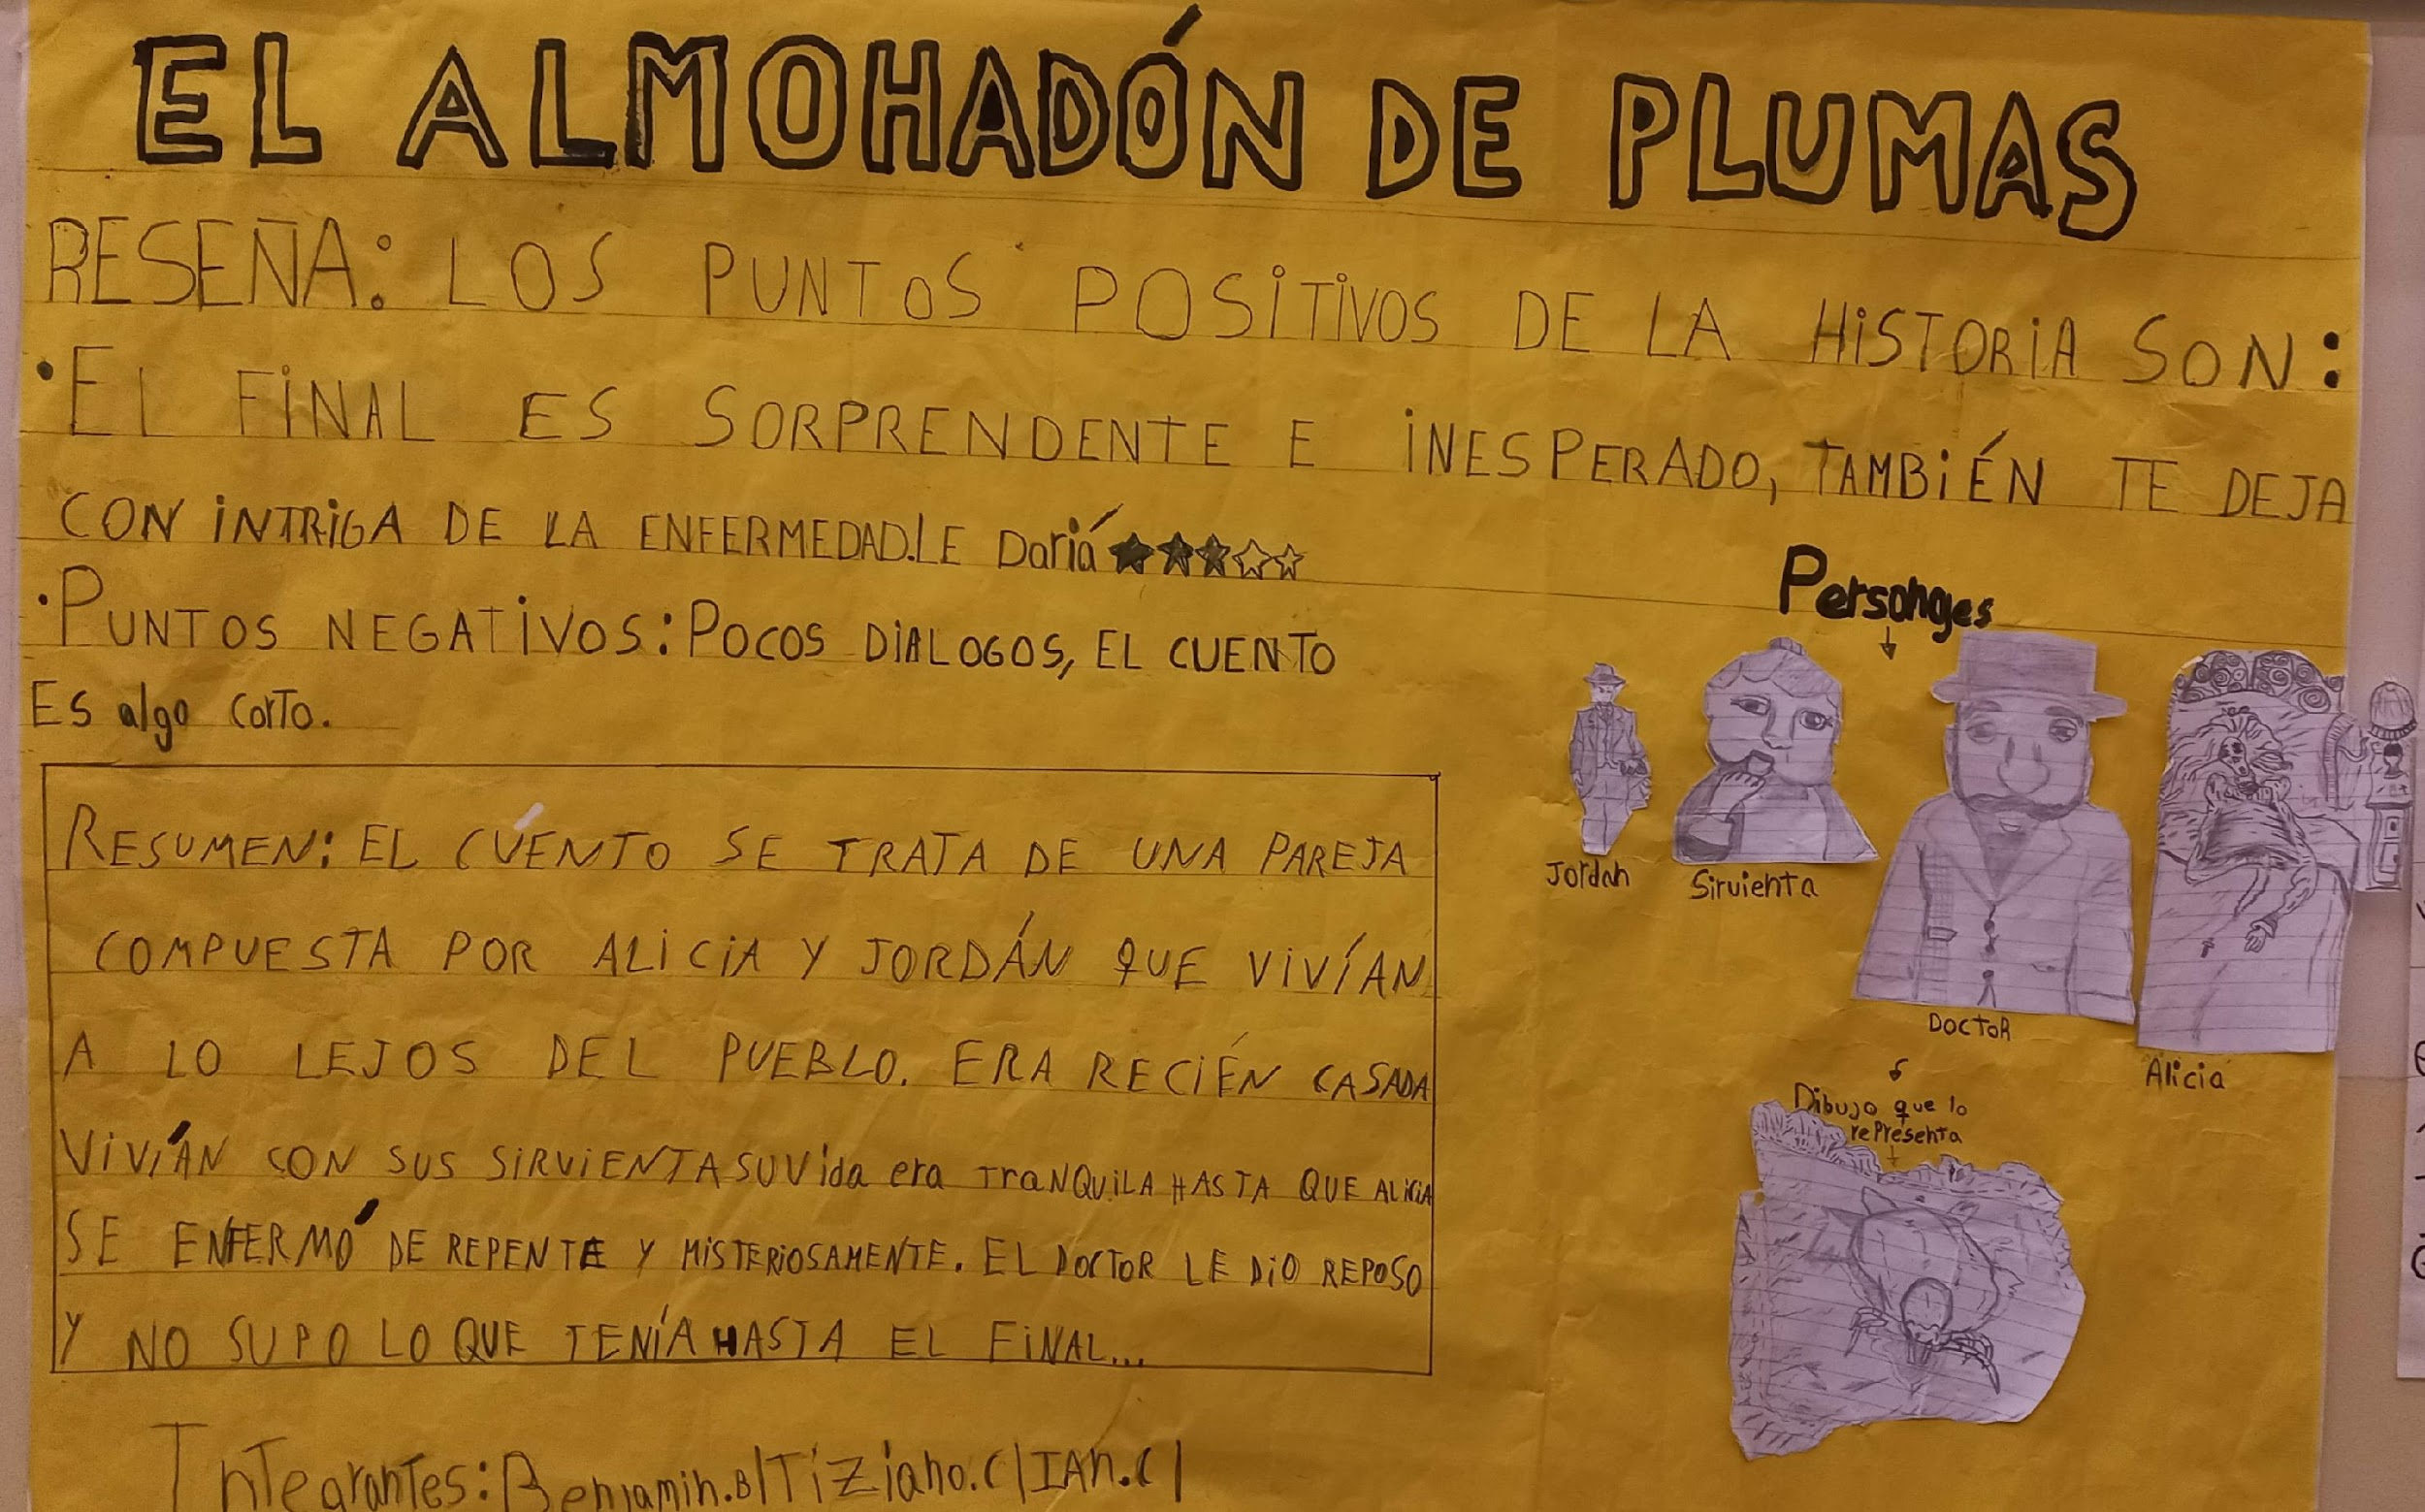 EL ALMOHADÓN DE PLUMAS
RESEÑA: LOS PUNTOS POSITIVOS DE LA HISTORIA SON:
•EL FINAL ES SORPRENDENTE E INESPERADO, TAMBIÉN TE DEJA
CON INTRIGA DE LA ENFERMEDAD.LE Dariá ★★★☆☆
•PUNTOS NEGATIVOS: POCOS DIALOGOS, EL CUENTO
Es algo corto.
RESUMEN: EL CUENTO SE TRATA DE UNA PAREJA
COMPUESTA POR ALICIA Y JORDÁN QUE VIVÍAN
A LO LEJOS DEL PUEBLO. ERA RECIÉN CASADA
VIVÍAN CON SUS SIRVIENTA SU Vida era TraNQUILA HASTA QUE ALICIA
SE ENFERMÓ DE REPENTE Y MISTERIOSAMENTE. EL DOCTOR LE DIO REPOSO
Y NO SUPO LO QUE TENÍA HASTA EL FINAL...
Integrantes: Benjamin.B/Tiziano.C/IAn.C/
Personges
Jordan
Sirvienta
DOCTOR
Alicia
Dibujo que lo
representa